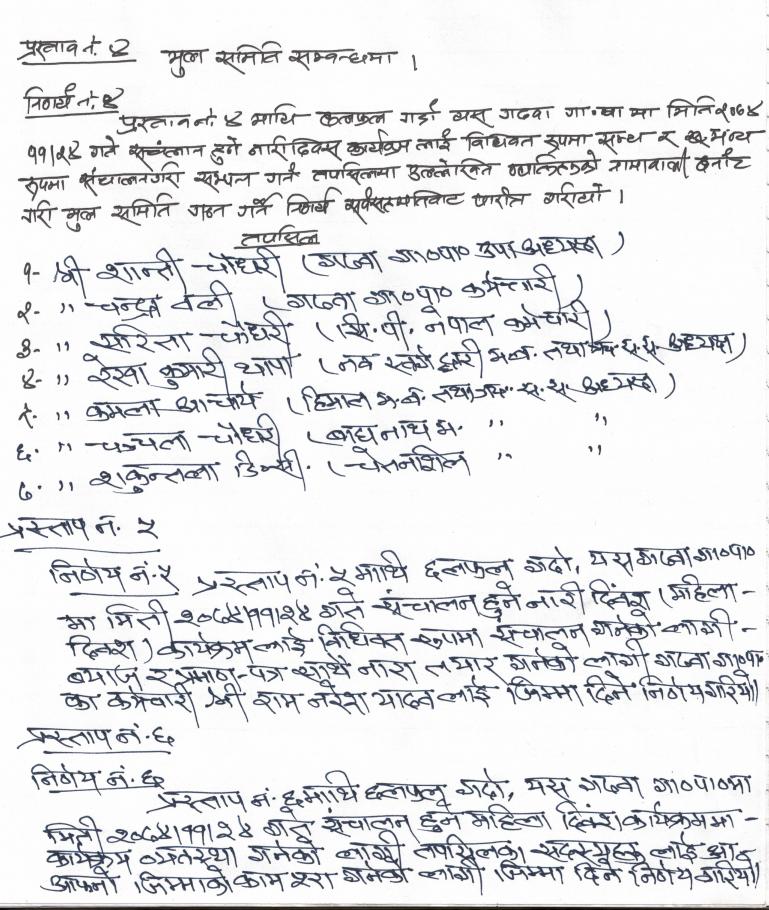 प्रस्ताव नं. ४ मुल समिति सम्बन्धमा ।
निर्णय नं. ४
प्रस्ताव नं. ४ माथि छलफल गर्दा यस गढवा गा.पा मा मिति २०७४
११।२४ गते संचालन हुने नारी दिवस कार्यक्रम लाई विधिवत रुपमा सभ्य र भव्य
रुपमा संचालन गरी सम्पन्न गर्न तपसिलमा उल्लेखित व्यक्तिहरुको नामावाली छनौट
गरी मुल समिति गठन गर्ने निर्णय सर्वसम्मतिबाट पारीत गरीयो ।
तपसिल
१- श्री शान्ती चौधरी (गढवा गा०पा० उपाअध्यक्ष)
२- ,, चन्द्रा वली (गढवा गा०पा० कर्मचारी)
३- ,, सरिता चौधरी (सि.पी. नेपाल कर्मचारी)
४- ,, रेखा कुमारी थापा (नव स्वर्गद्वारी म.ब. तथा स.स. अध्यक्ष)
५. ,, कमला आचार्य (हिमाल म.ब. तथा स.स. अध्यक्ष)
६. ,, चञ्चला चौधरी (बैद्यनाथ म. ,, ,,
७. ,, शकुन्तला डि.सी. (चेतनाशिल ,, ,,
प्रस्ताप नं. ५
निर्णय नं. ५ प्रस्ताप नं. ५ माथि छलफल गर्दा, यस गढवा गा०पा०
मा मिती २०७४।११।२४ गते संचालन हुने नारी दिवश (महिला -
दिवश) कार्यक्रम लाई विधिवत रुपमा संचालन गर्नको लागी -
ब्यानर र प्रमाण-पत्र साथै नारा तयार गर्नको लागी गढवा गा०पा०
का कर्मचारी श्री राम नरेश यादव लाई जिम्मा दिने निर्णय गरियो।
प्रस्ताप नं. ६
निर्णय नं. ६
प्रस्ताप नं. ६ माथि छलफल गर्दा, यस गढवा गा०पा०मा
मिती २०७४।११।२४ गते संचालन हुने महिला दिवश कार्यक्रममा -
कार्यक्रम व्यवस्था गर्नको लागी तपसिलका सदस्यहरु लाई
आफ्नो जिम्माको काम पुरा गर्नको लागी जिम्मा दिने निर्णय गरियो।